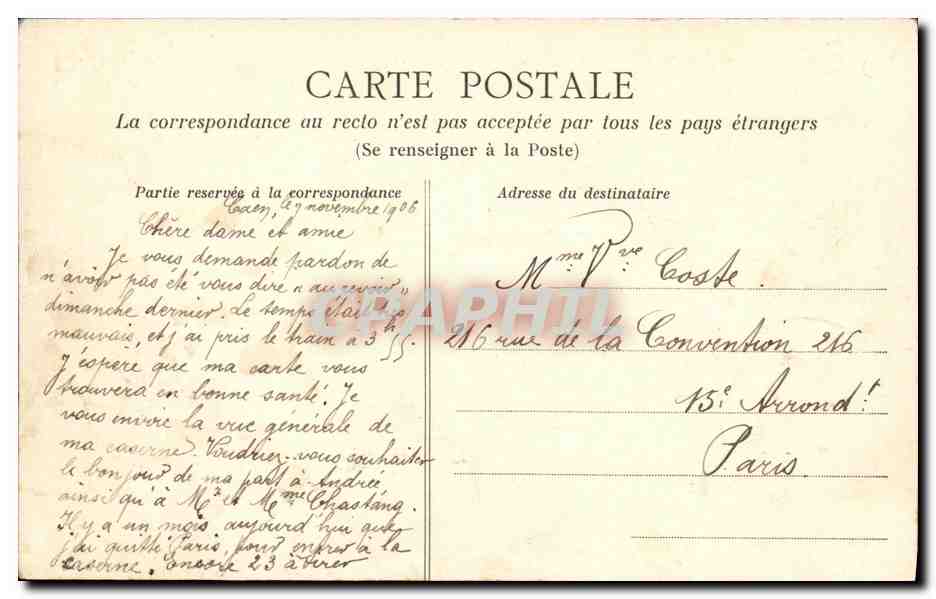 CARTE POSTALE
La correspondance au recto n'est pas acceptée par tous les pays étrangers
(Se renseigner à la Poste)
Partie reservée à la correspondance
Adresse du destinataire
Caen, le 7 novembre 1906
Chère dame et amie
Je vous demande pardon de
n'avoir pas été vous dire « au revoir »
dimanche dernier. Le temps était très
mauvais, et j'ai pris le train à 3h 55.
J'espère que ma carte vous
trouvera en bonne santé. Je
vous envoie la vue générale de
ma caserne. Voudriez-vous souhaiter
le bonjour de ma part à Andrée
ainsi qu'à Mr et Mme Chastang.
Il y a un mois aujourd'hui que
j'ai quitté Paris, pour entrer à la
caserne. Encore 23 à tirer
Mme Vve Coste.
216 rue de la Convention 216
15e Arrondt.
Paris
CPAPHIL